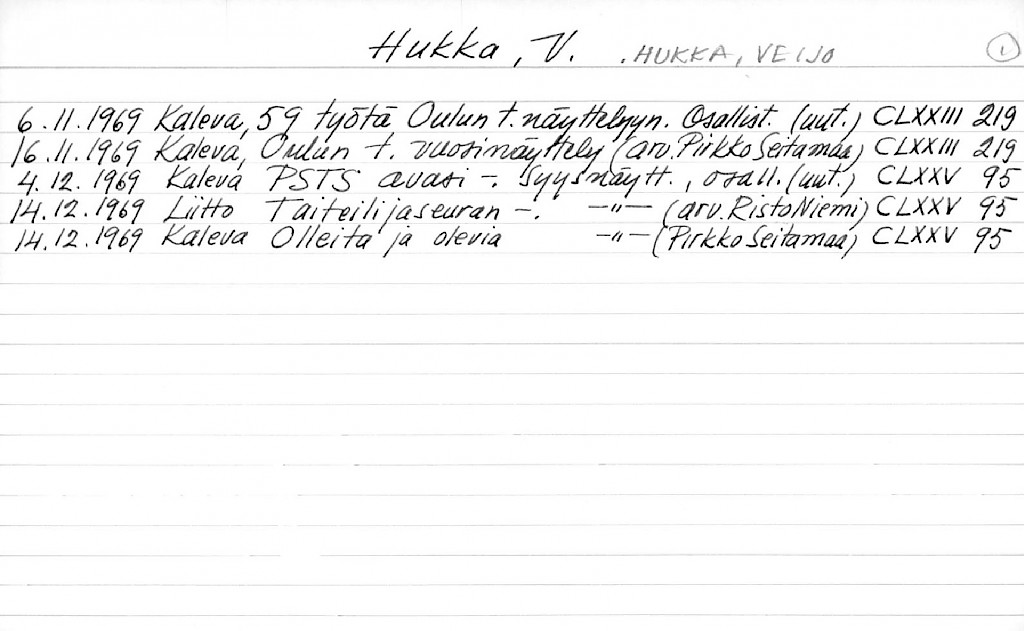 Hukka, V. . HUKKA, VEIJO 1
6.11.1969 Kaleva, 59 työtä Oulun t. näyttelyyn. Osallist. (uut.) CLXXIII 219
16.11.1969 Kaleva, Oulun t. vuosinäyttely (arv. Pirkko Seitamaa) CLXXIII 219
4.12.1969 Kaleva PSTS avasi -. Syysnäytt., osall. (uut.) CLXXV 95
14.12.1969 Liitto Taiteilijaseuran -. -"- (arv. Risto Niemi) CLXXV 95
14.12.1969 Kaleva Olleita ja olevia -"- (Pirkko Seitamaa) CLXXV 95